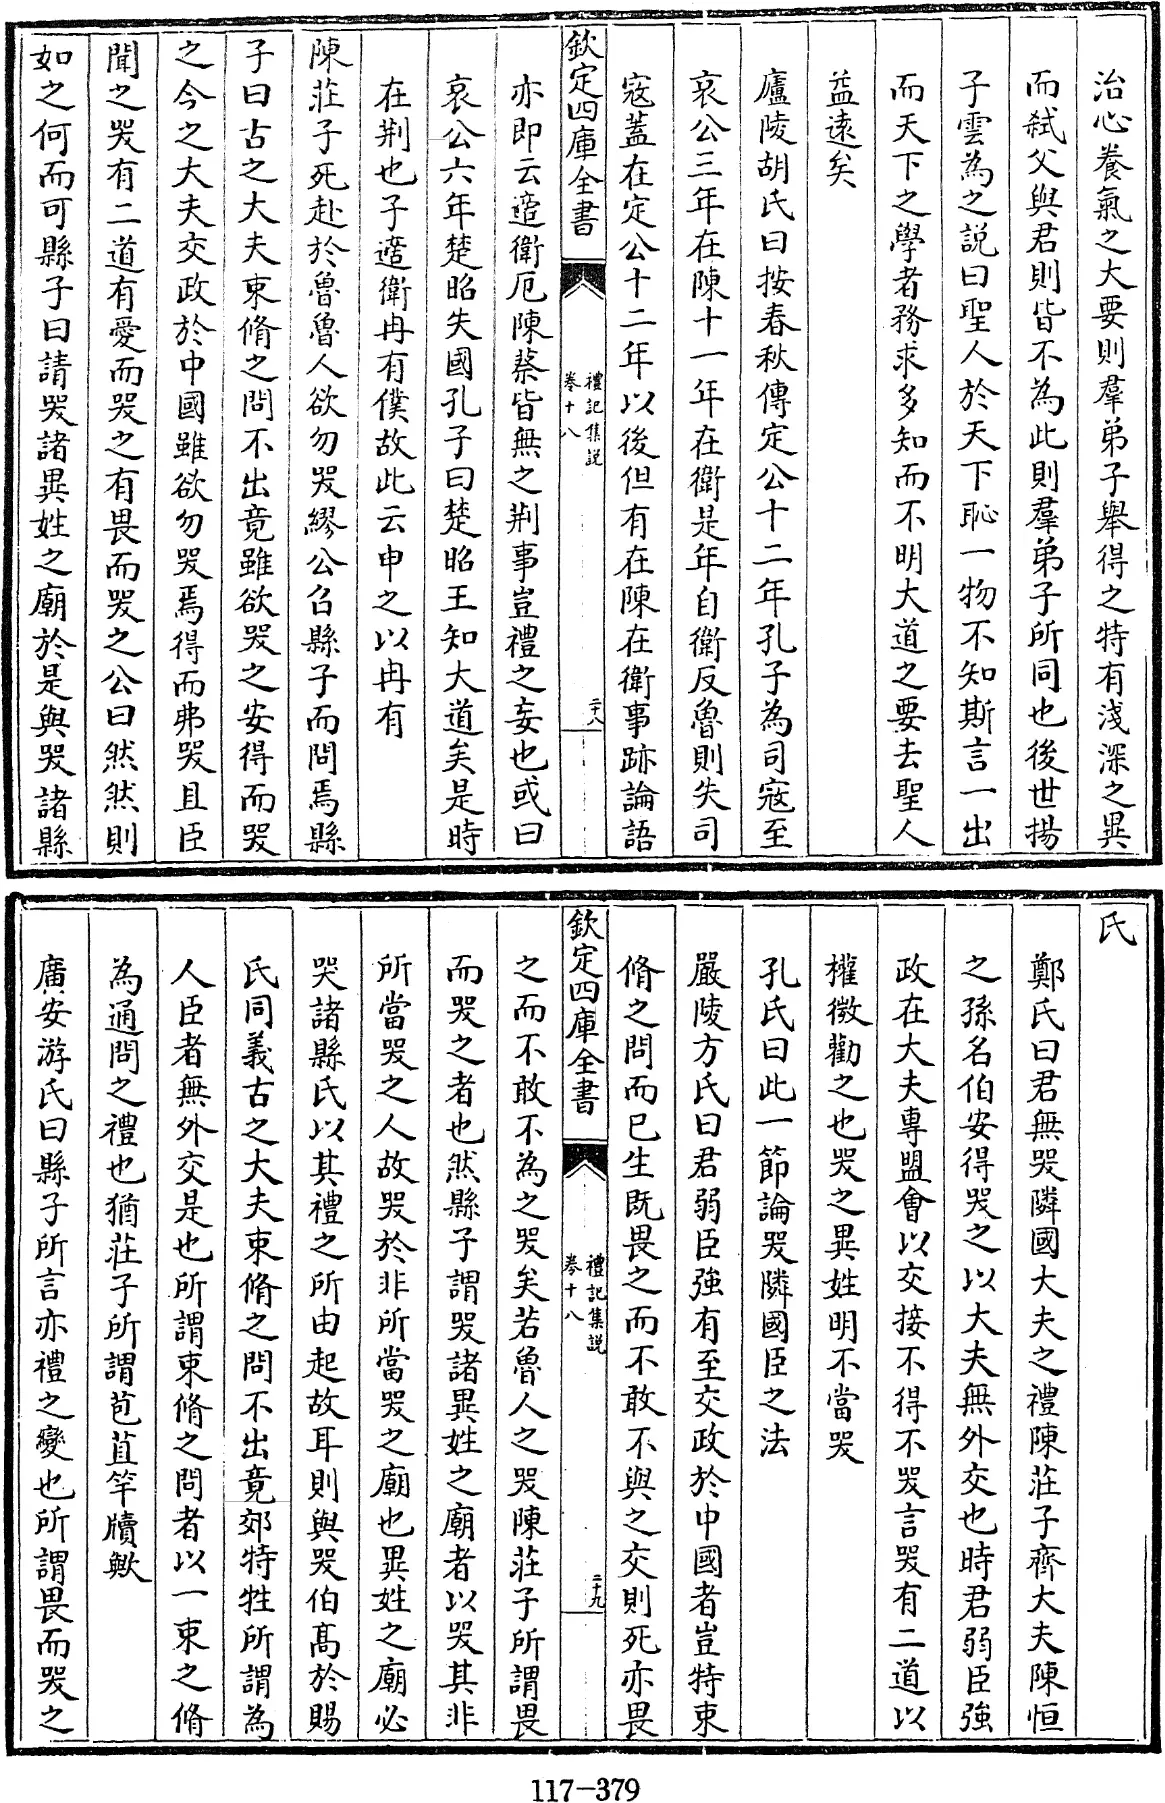 治心養氣之大要則羣弟子舉得之特有淺深之異
而弑父與君則皆不為此則羣弟子所同也後世揚
子雲為之説曰聖人於天下恥一物不知斯言一出
而天下之學者務求多知而不明大道之要去聖人
益遠矣
廬陵胡氏曰按春秋傳定公十二年孔子為司寇至
哀公三年在陳十一年在衛是年自衛反魯則失司
寇蓋在定公十二年以後但有在陳在衛事跡論語
欽定四庫全書
禮記集説
卷十八
二十八
亦即云適衛厄陳蔡皆無之荆事豈禮之妄也或曰
哀公六年楚昭失國孔子曰楚昭王知大道矣是時
在荆也子適衛冉有僕故此云申之以冉有
陳莊子死赴於魯魯人欲勿哭繆公召縣子而問焉縣
子曰古之大夫束脩之問不出竟雖欲哭之安得而哭
之今之大夫交政於中國雖欲勿哭焉得而弗哭且臣
聞之哭有二道有愛而哭之有畏而哭之公曰然然則
如之何而可縣子曰請哭諸異姓之廟於是與哭諸縣
氏
鄭氏曰君無哭隣國大夫之禮陳莊子齊大夫陳恒
之孫名伯安得哭之以大夫無外交也時君弱臣強
政在大夫專盟會以交接不得不哭言哭有二道以
權微勸之也哭之異姓明不當哭
孔氏曰此一節論哭隣國臣之法
嚴陵方氏曰君弱臣強有至交政於中國者豈特束
脩之問而已生既畏之而不敢不與之交則死亦畏
欽定四庫全書
禮記集説
卷十八
二十九
之而不敢不為之哭矣若魯人之哭陳莊子所謂畏
而哭之者也然縣子謂哭諸異姓之廟者以哭其非
所當哭之人故哭於非所當哭之廟也異姓之廟必
哭諸縣氏以其禮之所由起故耳則與哭伯高於賜
氏同義古之大夫束脩之問不出竟郊特牲所謂為
人臣者無外交是也所謂束脩之問者以一束之脩
為通問之禮也猶莊子所謂苞苴竿牘歟
廣安游氏曰縣子所言亦禮之變也所謂畏而哭之
117-379